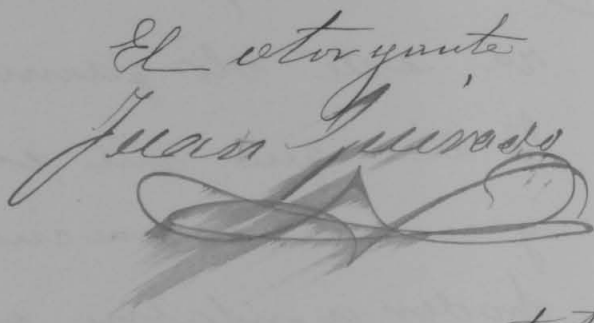 El otorgante
Juan Guirado